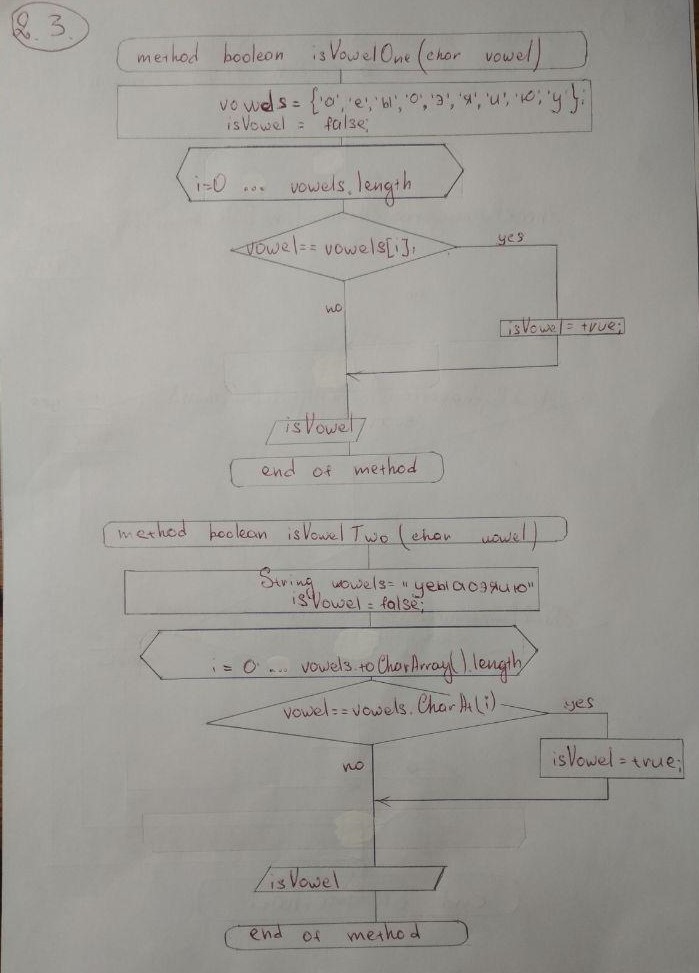 2.3.
method boolean isVowelOne(char vowel)
vowels = {'а','е','ы','о','э','я','и','ю','у'};
isVowel = false;
i=0 ... vowels.length
vowel== vowels[i],
yes
no
isVowel= true;
isVowel
end of method
method boolean isVowelTwo (char vowel)
String vowels= "уеыаоэяию"
isVowel = false;
i = 0 ... vowels.toCharArray().length
vowel==vowels.CharAt(i)
yes
no
isVowel=true;
isVowel
end of method